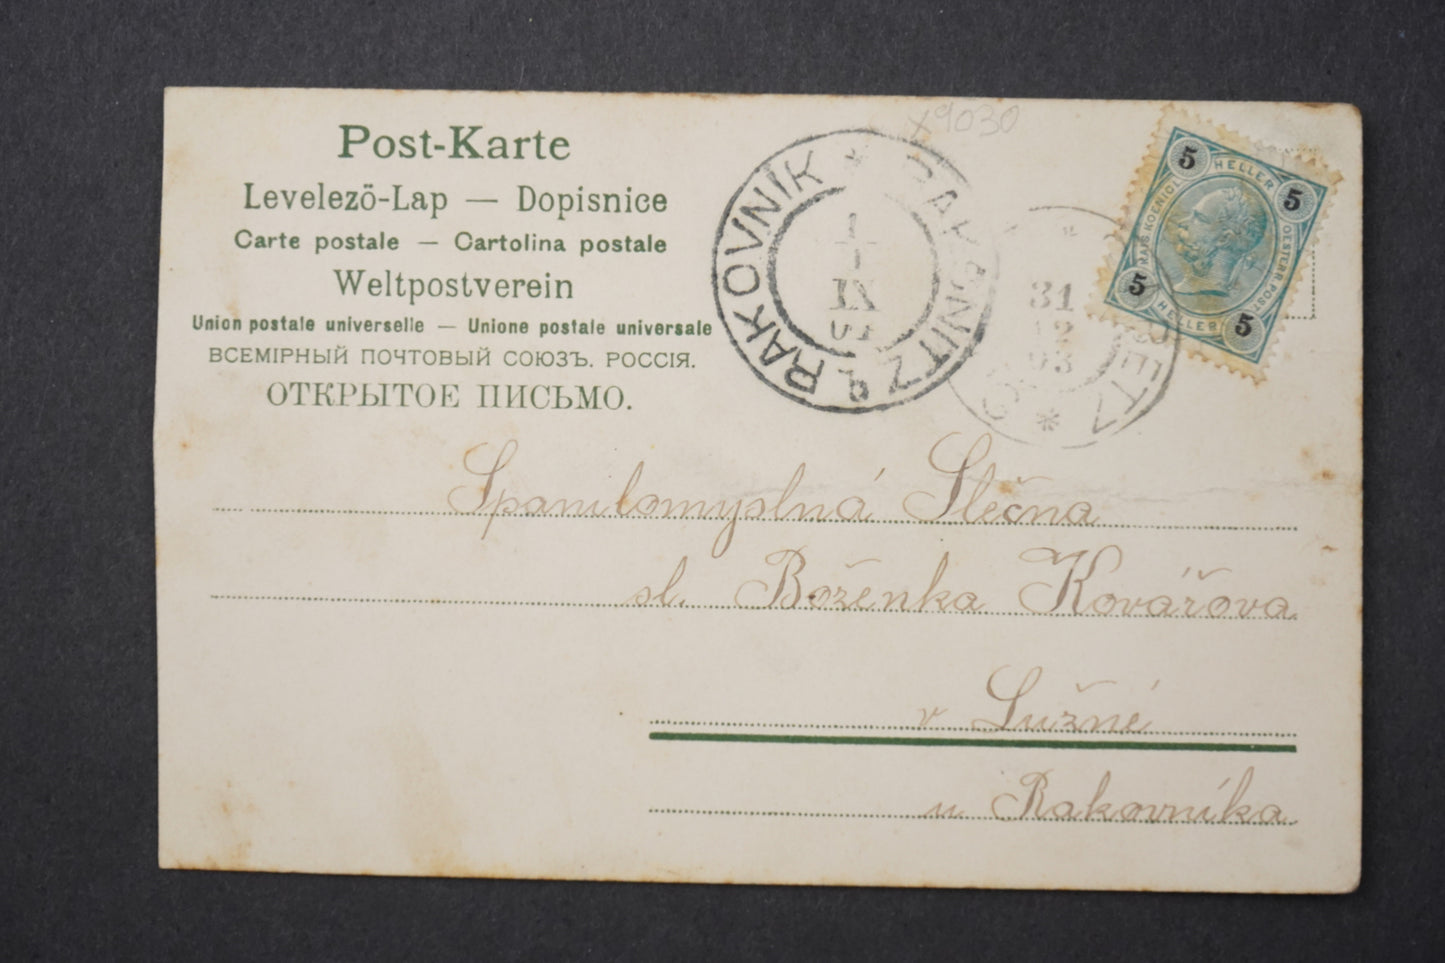 Post-Karte
Levelezö-Lap — Dopisnice
Carte postale — Cartolina postale
Weltpostverein
Union postale universelle — Unione postale universale
ВСЕМІРНЫЙ ПОЧТОВЫЙ СОЮЗЪ. РОССІЯ.
ОТКРЫТОЕ ПИСЬМО.
X9030
RAKOVNÍK * RAKONITZ
31
12
03
5 HELLER 5
5 HELLER 5
Spanilomyslná Slečna
sl. Boženka Kovářova
v Lužné
u Rakovníka